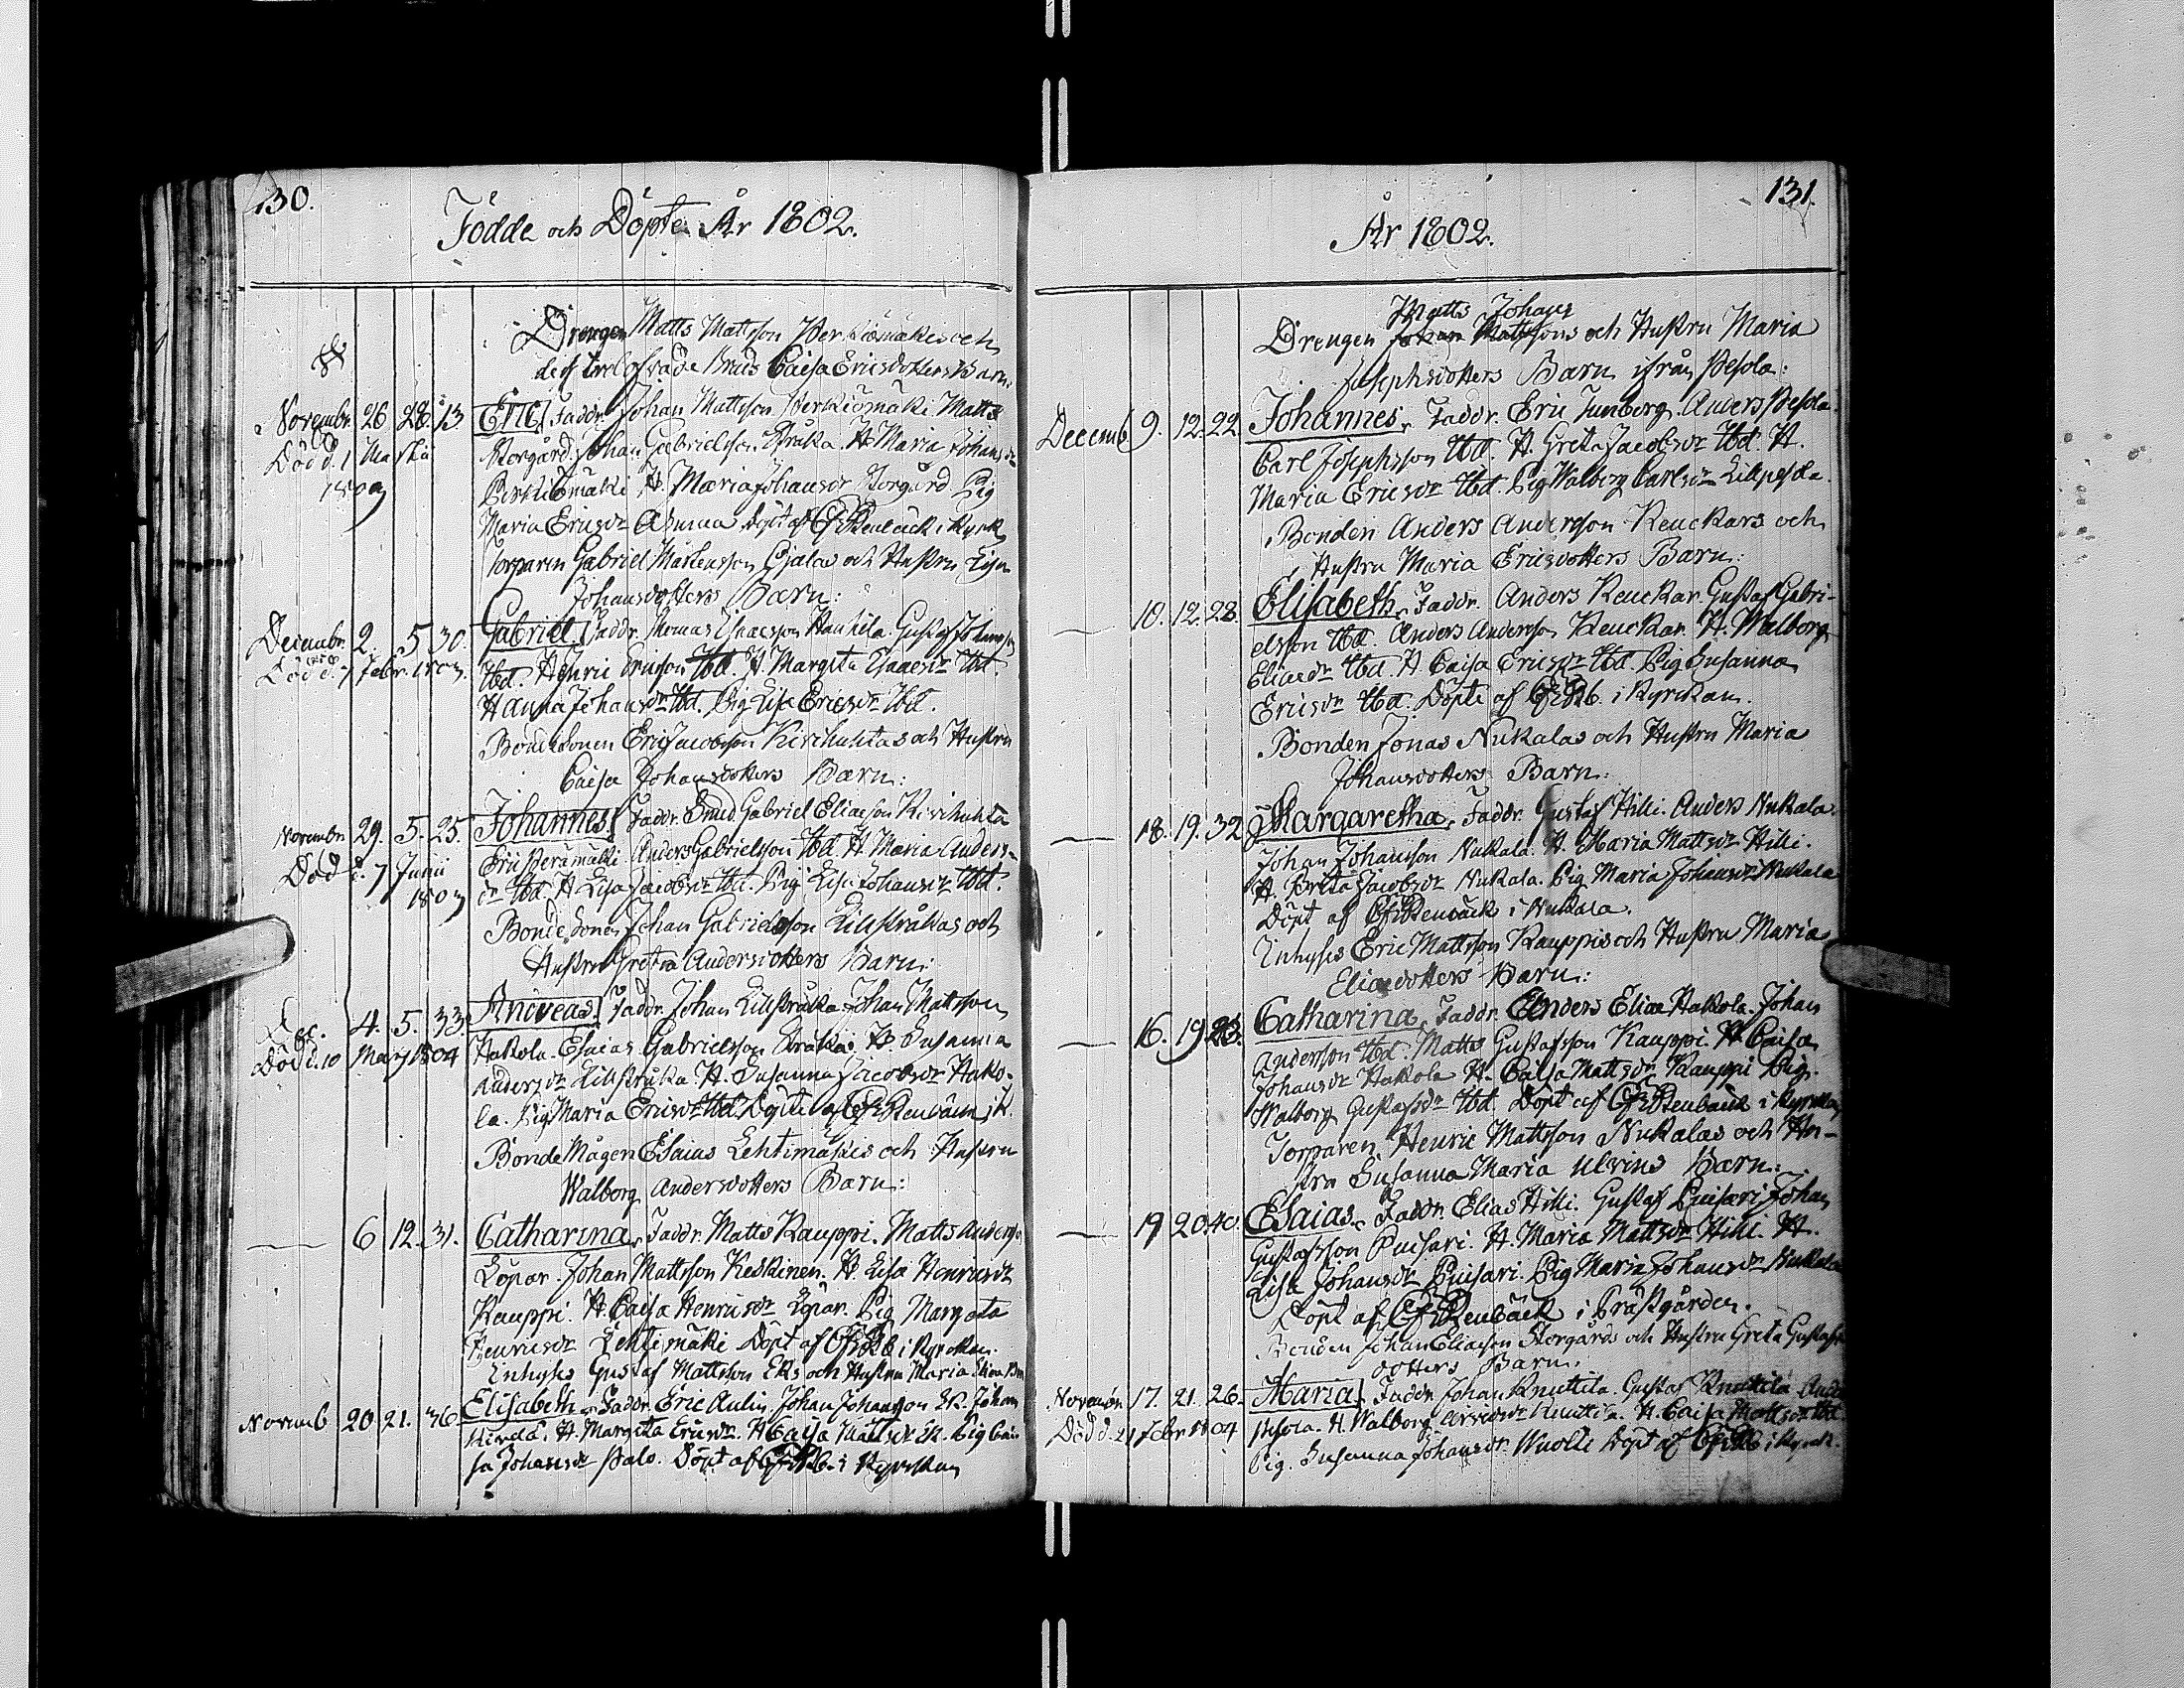 130.
Födde och Döpte År 1802.
Drengen Matts Mattsson
trolofvade Brud Caisa Ericsdotters Barn:
Novembr. 26 28. 13 Eric, Faddr. Johan Mattsson Matts
Död d. 1 Martii Storgård. Johan Gabrielsson Stråka. H. Maria Johansdr
1803 H. Maria Johansdr Storgård Pig
Maria Ericsdr döpt af Renbäck i Kyrk
Torparen Gabriel Mårtensson och Hustru Lisa
Johansdotters Barn:
Decembr. 2. 5 30. Gabriel, Faddr. Thomas Isaacsson Hankila. Gustaf Johansson
Död d. 7 Febr. 1803. Ibd. Henric Ericsson Ibd. H. Margeta Isaacsdr Ibd.
H Anna Johansdr Ibd. Pig Lisa Ericsdr Ibd.
Bondesonen Eric Jacobsson Kirihuhtas och Hustru
Caisa Johansdotters Barn:
Novembr. 29. 5. 25. Johannes, Faddr. Smed Gabriel Eliaeson Kirihuhta
Död d. 7 Junii Eric Perämäki. Anders Gabrielsson Ibd. H Maria Anders-
1803 dr Ibd. H Lisa Jacobsdr Ibd. Pig Lisa Johansdr Ibd.
Bonde Sonen Johan Gabrielsson Lillstråkas och
Hustru Greta Andersdotters Barn:
Dec. 4. 5. 33. Andreas, Faddr. Johan Lillstråka Johan Mattsson
Död d. 10 Maij 1804 Hakola. Esaias Gabrielsson Stråka. H. Susanna
Andersdr Lillstråka. H. Susanna Jacobsdr Hako-
la. Pig Maria Ericsdr Ibd. Döpte af Renbäck i K.
Bonde Mågen Esaias Lehtimäkis och Hustru
Walborg Andersdotters Barn:
— 6 12. 31. Catharina, Faddr. Matts Kauppi. Matts Anderss.
Löpar. Johan Mattsson Keskinen. H. Lisa Henricsdr
Kauppi. H. Caisa Henricsdr Löpar. Pig Margeta
Henricsdr Lehtimäki Döpt af i Kyrckan.
Inhyses Gustaf Mattsson Eks och Hustru Maria
Novemb 20 21. 36. Elisabeth, Faddr. Eric Aulin. Johan Johansson Ek. Johan
H. Margeta Ericsdr. H Caisa Mattsdr Ek. Pig Cai-
sa Johansdr Palo. Döpt af i Kyrckan
131.
År 1802.
Matts Johans
Drengen Johan Mattssons och Hustru Maria
Josephsdotters Barn ifrån Pesola:
Decemb. 9. 12. 22. Johannes, Faddr. Eric Tunborg. Anders Pesola.
Carl Josephsson Ibd. H. Greta Jacobsdr Ibd. H.
Maria Ericsdr Ibd. Pig Walborg Carlsdr Lillpesola.
Bonden Anders Andersson Keuckars och
Hustru Maria Ericsdotters Barn:
— 10. 12. 28. Elisabeth, Faddr. Anders Keuckar. Gustaf Gabri-
elsson Ibd. Anders Andersson Keuckar. H. Walborg
Eliaedr Ibd. H Caisa Ericsdr Ibd. Pig Susanna
Ericsdr Ibd. Döpte af i Kyrckan.
Bonden Jonas Nukalas och Hustru Maria
Johansdotters Barn:
— 18. 19. 32 Margaretha, Faddr. Gustaf Hilli. Anders Nukala.
Johan Johansson Nukala. H. Maria Mattsdr Hilli.
H. Brita Jacobsdr Nukala. Pig Maria Johansdr Nukala
Döpt af Renbäck i Nukala.
Inhyses Eric Mattsson Kauppis och Hustru Maria
Eliaedotters Barn:
— 16. 19. 23. Catharina, Faddr. Anders Eliae Hakola. Johan
Andersson Ibd. Matts Gustafsson Kauppi. H Caisa
Johansdr Hakola H. Caisa Mattsdr Kauppi Pig
Walborg Gustafsdr Ibd. Döpt af Renbäck i Kyrckan
Torparen Henric Mattsson Nukalas och Hu-
stru Susanna Maria Ulvins Barn:
— 19 20. 40. Esaias, Faddr. Elias Hilli. Gustaf Puisari Johan
Gustafsson Puisari. H. Maria Mattsdr Hilli. H.
Lisa Johansdr Puisari. Pig Maria Johansdr Nukala
Döpt af Renbäck i Prästgården.
Bonden Johan Eliaeson Storgårds och Hustru Greta Gustafs
dotters Barn.
Novembr 17. 21. 26. Maria, Faddr. Johan Knuttila. Gustaf Knuttila
Död d. 21 Febr 1804 Pesola. H. Walborg Knuttila. H. Caisa Mattsdr Ibd
Pig. Susanna Johansdr. Wuolle Döpt af i Kyrck.